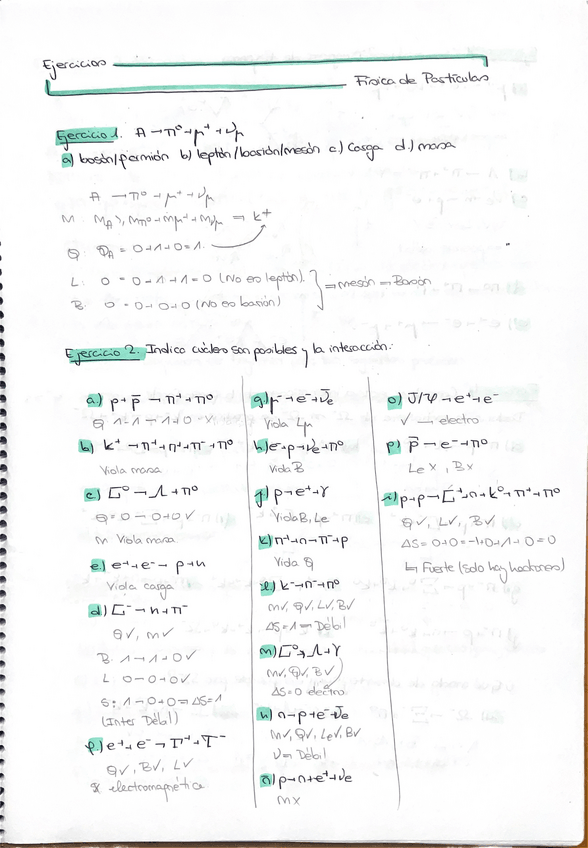 Ejercicios
Física de Partículas
Ejercicio 1. A → π⁰ + μ⁺ + νμ
a) bosón/fermión b) leptón/barión/mesón c.) Carga d.) masa
A → π⁰ + μ⁺ + νμ
M: MA > mπ⁰ + mμ⁺ + mνμ = k⁺
Q: QA = 0+1+0=1.
L: 0 = 0-1+1=0 (No es leptón).
B: 0 = 0+0+0 (No es barión)
= mesón = Bosón
Ejercicio 2. Indica cuáles son posibles y la interacción.
a.) p + p̄ → π⁺ + π⁰
Q 1-1 → 1+0 X
b.) k⁺ → π⁺ + π⁺ + π⁻ + π⁰
Viola masa
c.) Σ⁰ → Λ + π⁰
Q = 0 → 0+0 ✓
m Viola masa
e.) e⁺ + e⁻ → p + n
Viola carga
d.) Σ⁻ → n + π⁻
Q✓, m✓
B: 1 → 1+0 ✓
L: 0 → 0+0 ✓
S: 1 → 0+0 = ΔS=1
(Inter Débil)
f.) e⁺ + e⁻ → τ⁺ + τ⁻
Q✓, B✓, L✓
electromagnética
g.) μ⁻ → e⁻ + ν̄e
Viola Lμ
h.) e⁻ + p → νe + π⁰
Viola B
j.) p → e⁺ + γ
Viola B, Le
k.) π⁺ + n → π⁻ + p
Viola Q
l.) k⁻ → π⁻ + π⁰
m✓, Q✓, L✓, B✓
ΔS=1 → Débil
m) Σ⁰ → Λ + γ
m✓, Q✓, B✓
ΔS=0 electro
n) n → p + e⁻ + ν̄e
m✓, Q✓, Le✓, B✓
ν = Débil
ñ) p → n + e⁺ + νe
m X
o) J/Ψ → e⁺ + e⁻
✓ → electro
p) p̄ → e⁻ + π⁰
Le X, B X
i) p + p → Σ⁺ + n + k⁰ + π⁺ + π⁰
Q✓, L✓, B✓
ΔS = 0+0 = -1+0+1+0 = 0
↳ Fuerte (solo hay hadrones)